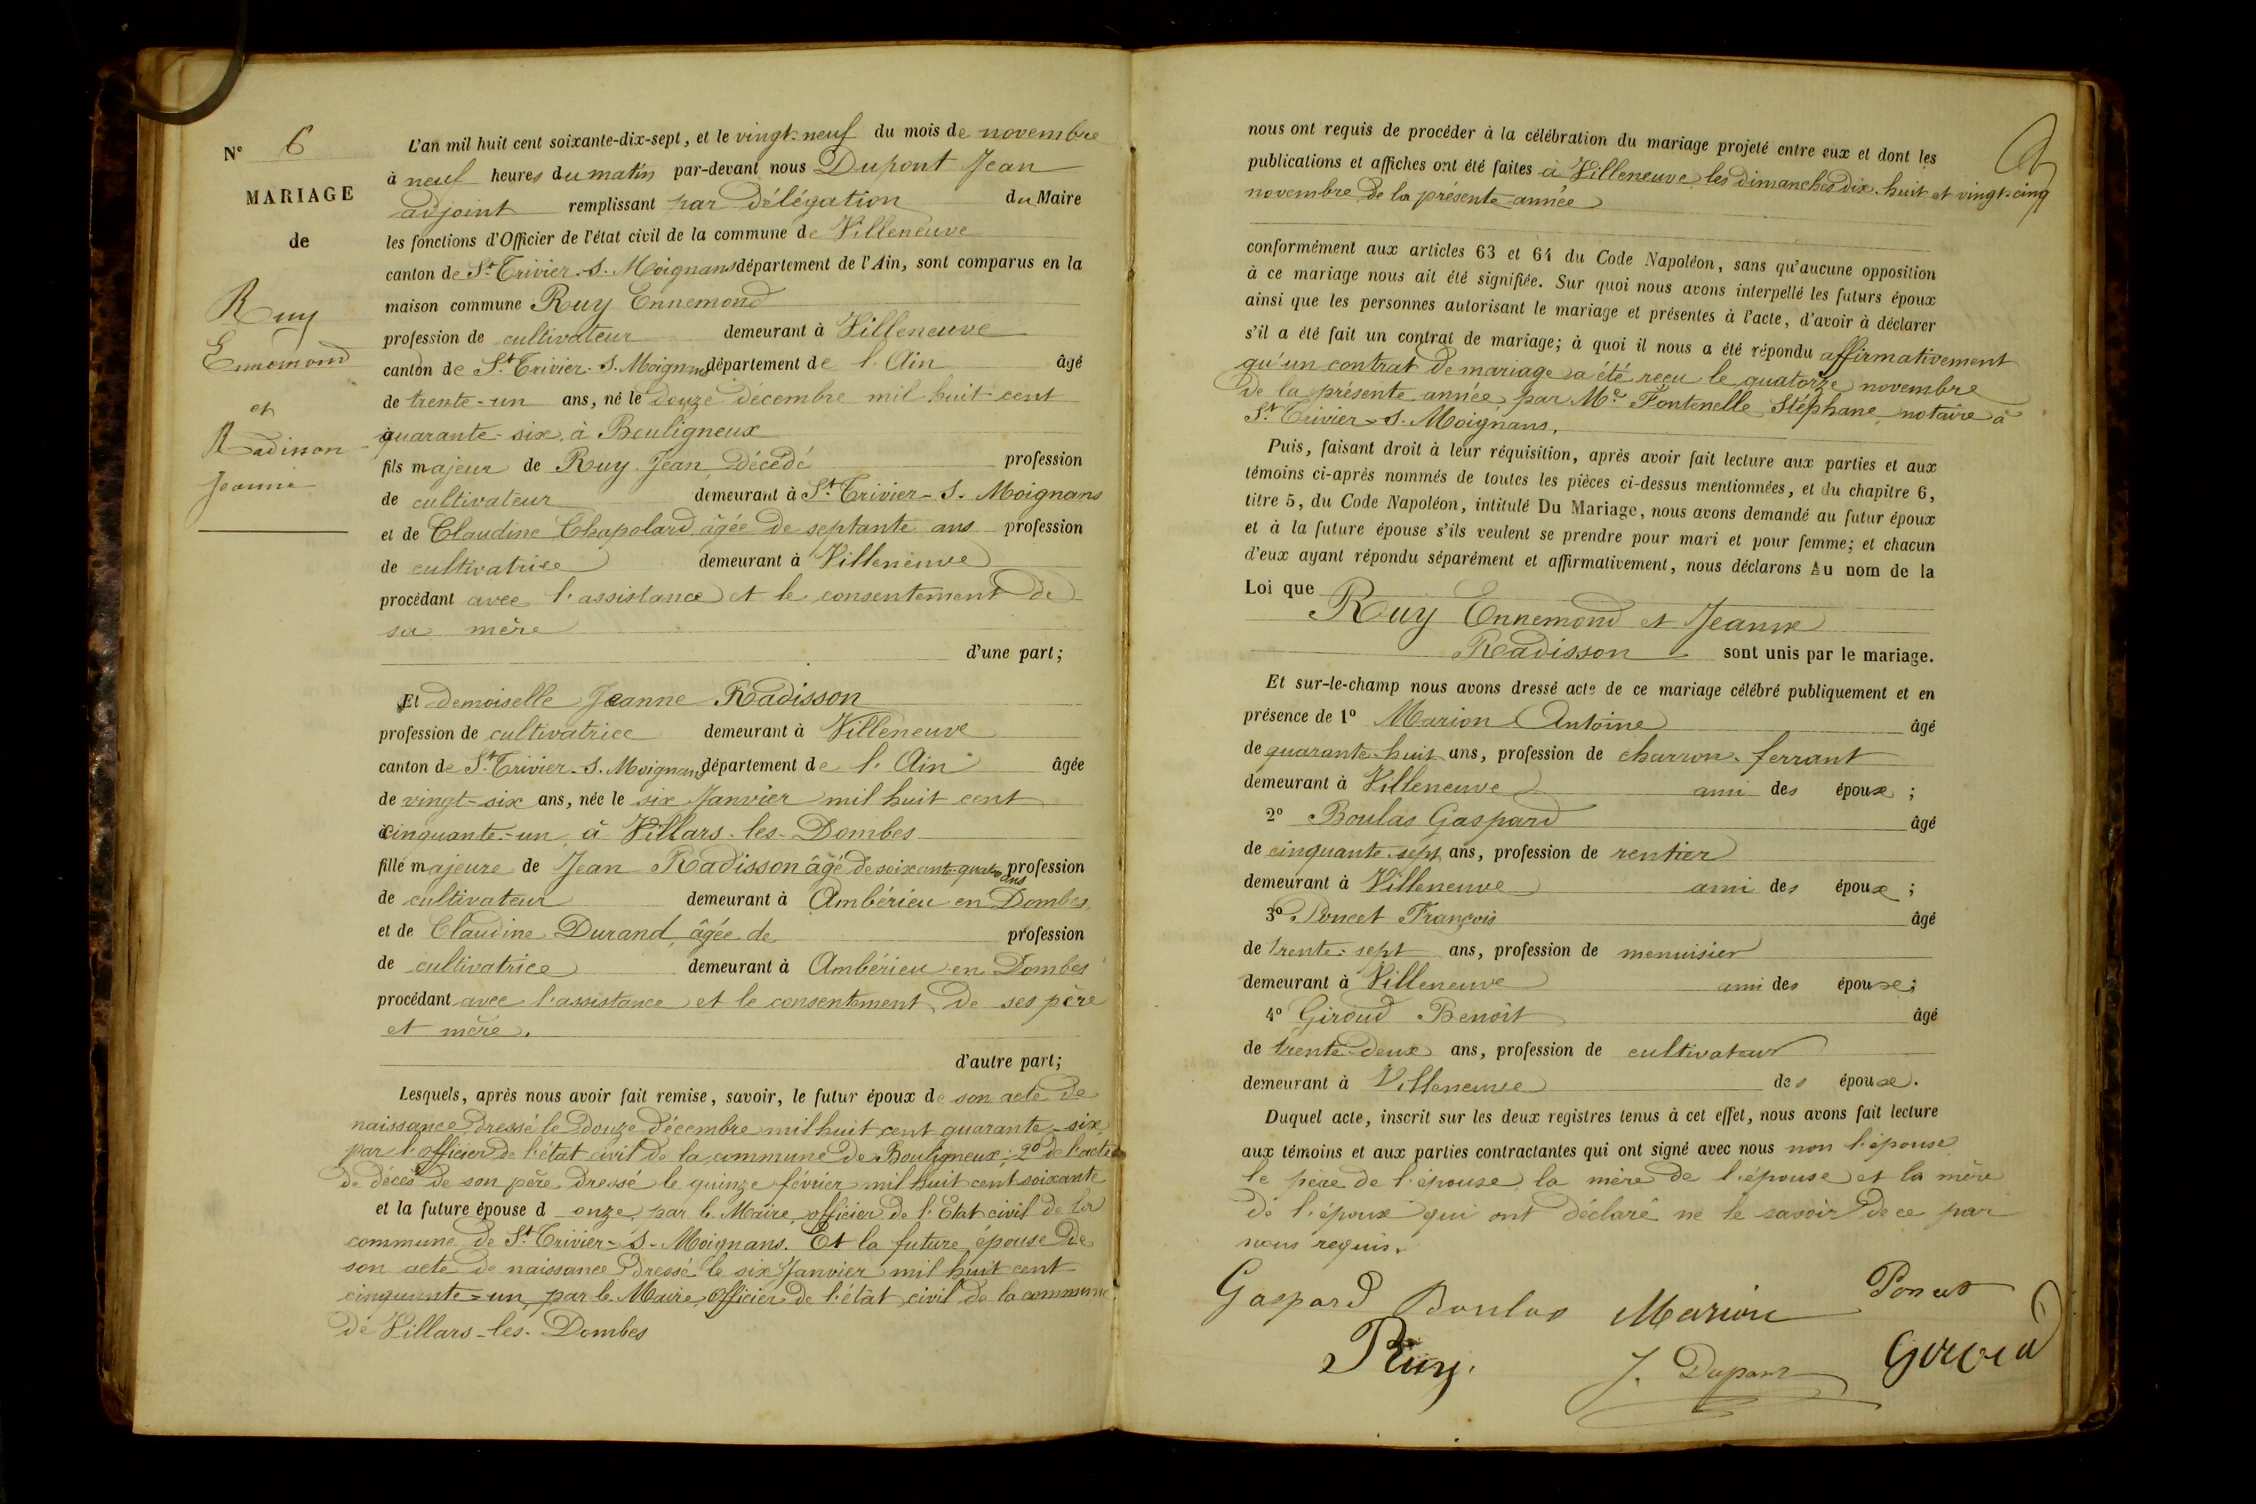 N° 6
MARIAGE
de
Ruy
Ennemond
et
Radisson
Jeanne
L'an mil huit cent soixante-dix-sept, et le vingt-neuf du mois de novembre
à neuf heures du matin par-devant nous Dupont Jean
adjoint remplissant par délégation du Maire
les fonctions d'Officier de l'état civil de la commune de Villeneuve
canton de St Trivier-s-Moignans département de l'Ain, sont comparus en la
maison commune Ruy Ennemond
profession de cultivateur demeurant à Villeneuve
canton de St Trivier-s-Moignans département de l'Ain âgé
de trente-un ans, né le douze décembre mil huit cent
quarante-six à Bouligneux
fils majeur de Ruy Jean décédé profession
de cultivateur demeurant à St Trivier-s-Moignans
et de Claudine Chapolard âgée de septante ans profession
de cultivatrice demeurant à Villeneuve
procédant avec l'assistance et le consentement de
sa mère
d'une part;
Et demoiselle Jeanne Radisson
profession de cultivatrice demeurant à Villeneuve
canton de St Trivier-s-Moignans département de l'Ain âgée
de vingt-six ans, née le six Janvier mil huit cent
cinquante-un à Villars-les-Dombes
fille majeure de Jean Radisson âgé de soixante-quatre ans profession
de cultivateur demeurant à Ambérieu en Dombes
et de Claudine Durand âgée de profession
de cultivatrice demeurant à Ambérieu en Dombes
procédant avec l'assistance et le consentement de ses père
et mère.
d'autre part;
Lesquels, après nous avoir fait remise, savoir, le futur époux de son acte de
naissance dressé le douze décembre mil huit cent quarante-six
par l'officier de l'état civil de la commune de Bouligneux; 2° de l'acte
de décès de son père dressé le quinze février mil huit cent soixante
et la future épouse d onze par le Maire officier de l'Etat civil de la
commune de St Trivier-s-Moignans. Et la future épouse de
son acte de naissance dressé le six Janvier mil huit cent
cinquante-un par le Maire officier de l'état civil de la commune
de Villars-les-Dombes
nous ont requis de procéder à la célébration du mariage projeté entre eux et dont les
publications et affiches ont été faites à Villeneuve les dimanches dix-huit et vingt-cinq
novembre de la présente année
conformément aux articles 63 et 64 du Code Napoléon, sans qu'aucune opposition
à ce mariage nous ait été signifiée. Sur quoi nous avons interpellé les futurs époux
ainsi que les personnes autorisant le mariage et présentes à l'acte, d'avoir à déclarer
s'il a été fait un contrat de mariage; à quoi il nous a été répondu affirmativement
qu'un contrat de mariage a été reçu le quatorze novembre
de la présente année par Me Fontenelle Stéphane notaire à
St Trivier-s-Moignans.
Puis, faisant droit à leur réquisition, après avoir fait lecture aux parties et aux
témoins ci-après nommés de toutes les pièces ci-dessus mentionnées, et du chapitre 6,
titre 5, du Code Napoléon, intitulé Du Mariage, nous avons demandé au futur époux
et à la future épouse s'ils veulent se prendre pour mari et pour femme; et chacun
d'eux ayant répondu séparément et affirmativement, nous déclarons Au nom de la
Loi que
Ruy Ennemond et Jeanne
Radisson sont unis par le mariage.
Et sur-le-champ nous avons dressé acte de ce mariage célébré publiquement et en
présence de 1° Marion Antoine âgé
de quarante-huit ans, profession de charron-ferrant
demeurant à Villeneuve ami des époux;
2° Boulas Gaspard âgé
de cinquante-sept ans, profession de rentier
demeurant à Villeneuve ami des époux;
3° Poncet François âgé
de trente-sept ans, profession de menuisier
demeurant à Villeneuve ami des époux;
4° Giroud Benoît âgé
de trente-deux ans, profession de cultivateur
demeurant à Villeneuve des époux.
Duquel acte, inscrit sur les deux registres tenus à cet effet, nous avons fait lecture
aux témoins et aux parties contractantes qui ont signé avec nous non l'épouse
le père de l'épouse la mère de l'épouse et la mère
de l'époux qui ont déclaré ne le savoir de ce par
nous requis.
Gaspard Boulas Marion Poncet
Ruy. J. Dupont Giroud